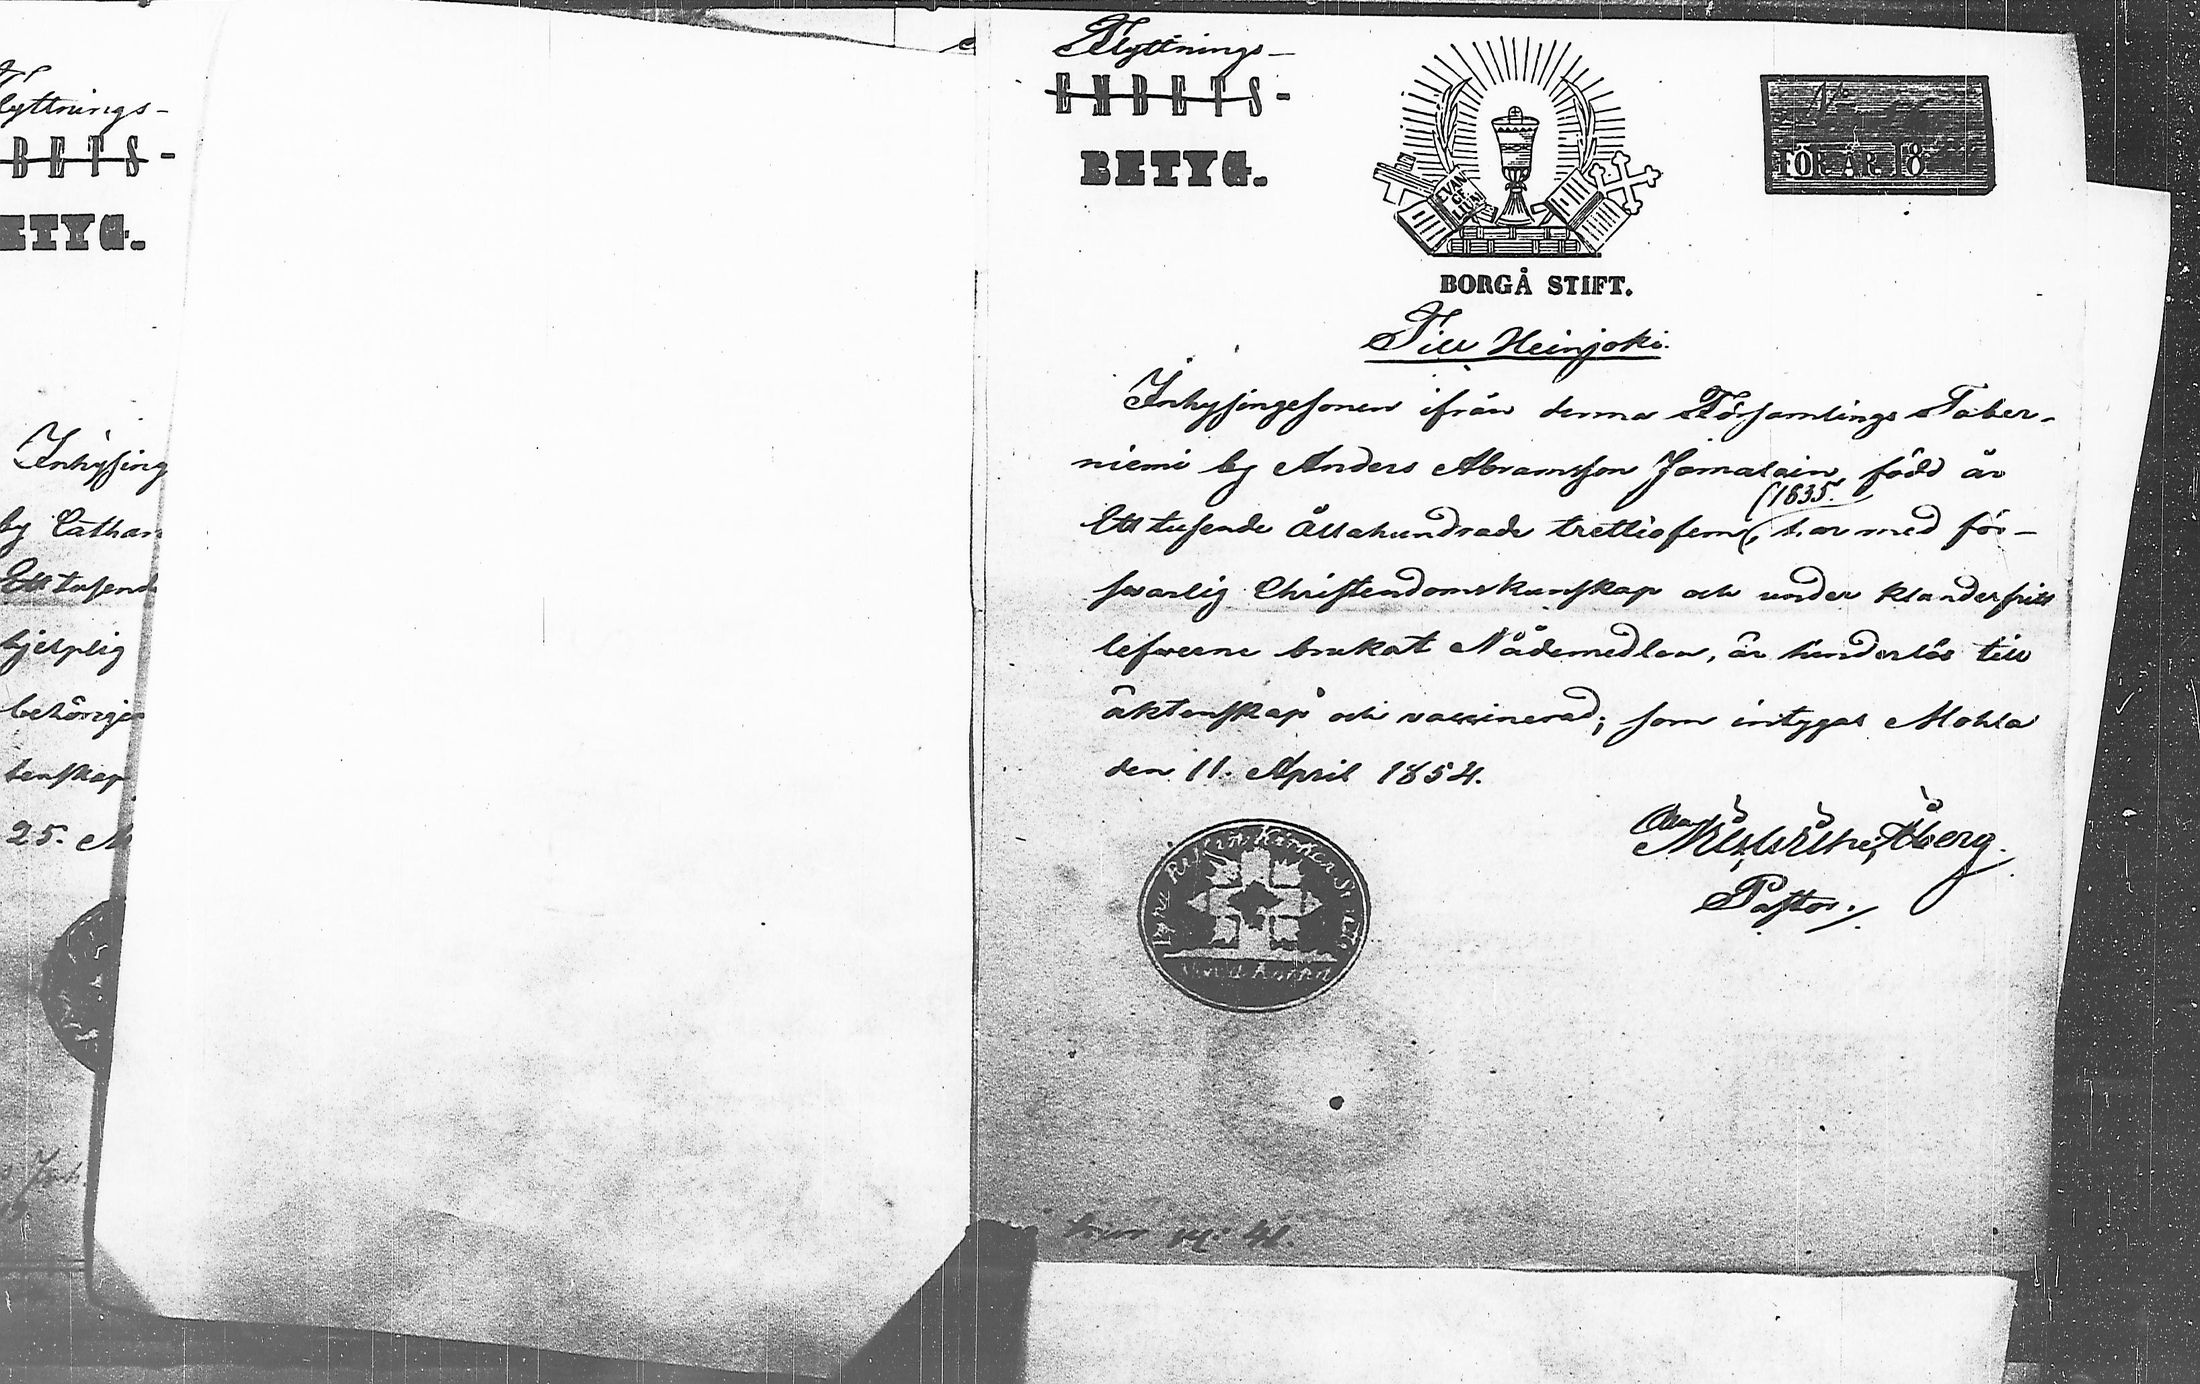 lyttnings-
BETS-
ETYG.
Inhysing
by Cathar
Ett tusend
hjelplig
behörige
tenskap
25. M
Flyttnings-
EMBETS-
BETYG.
EVAN
GE
LIUM
FÖR ÅR 18
BORGÅ STIFT.
Till Heinjoki.
Inhysingesonen ifrån denna Församlings Taber-
niemi by Anders Abramsson Jamalain, född år
(1835.
Ett tusende åttahundrade trettiofem, har med för-
svarlig Christendomskunskap och under klanderfritt
lefverne brukat Nådemedlen, är hinderlös till
äktenskap och vaccinerad; som intygas Mohla
den 11. April 1854.
Åberg.
Pastor.